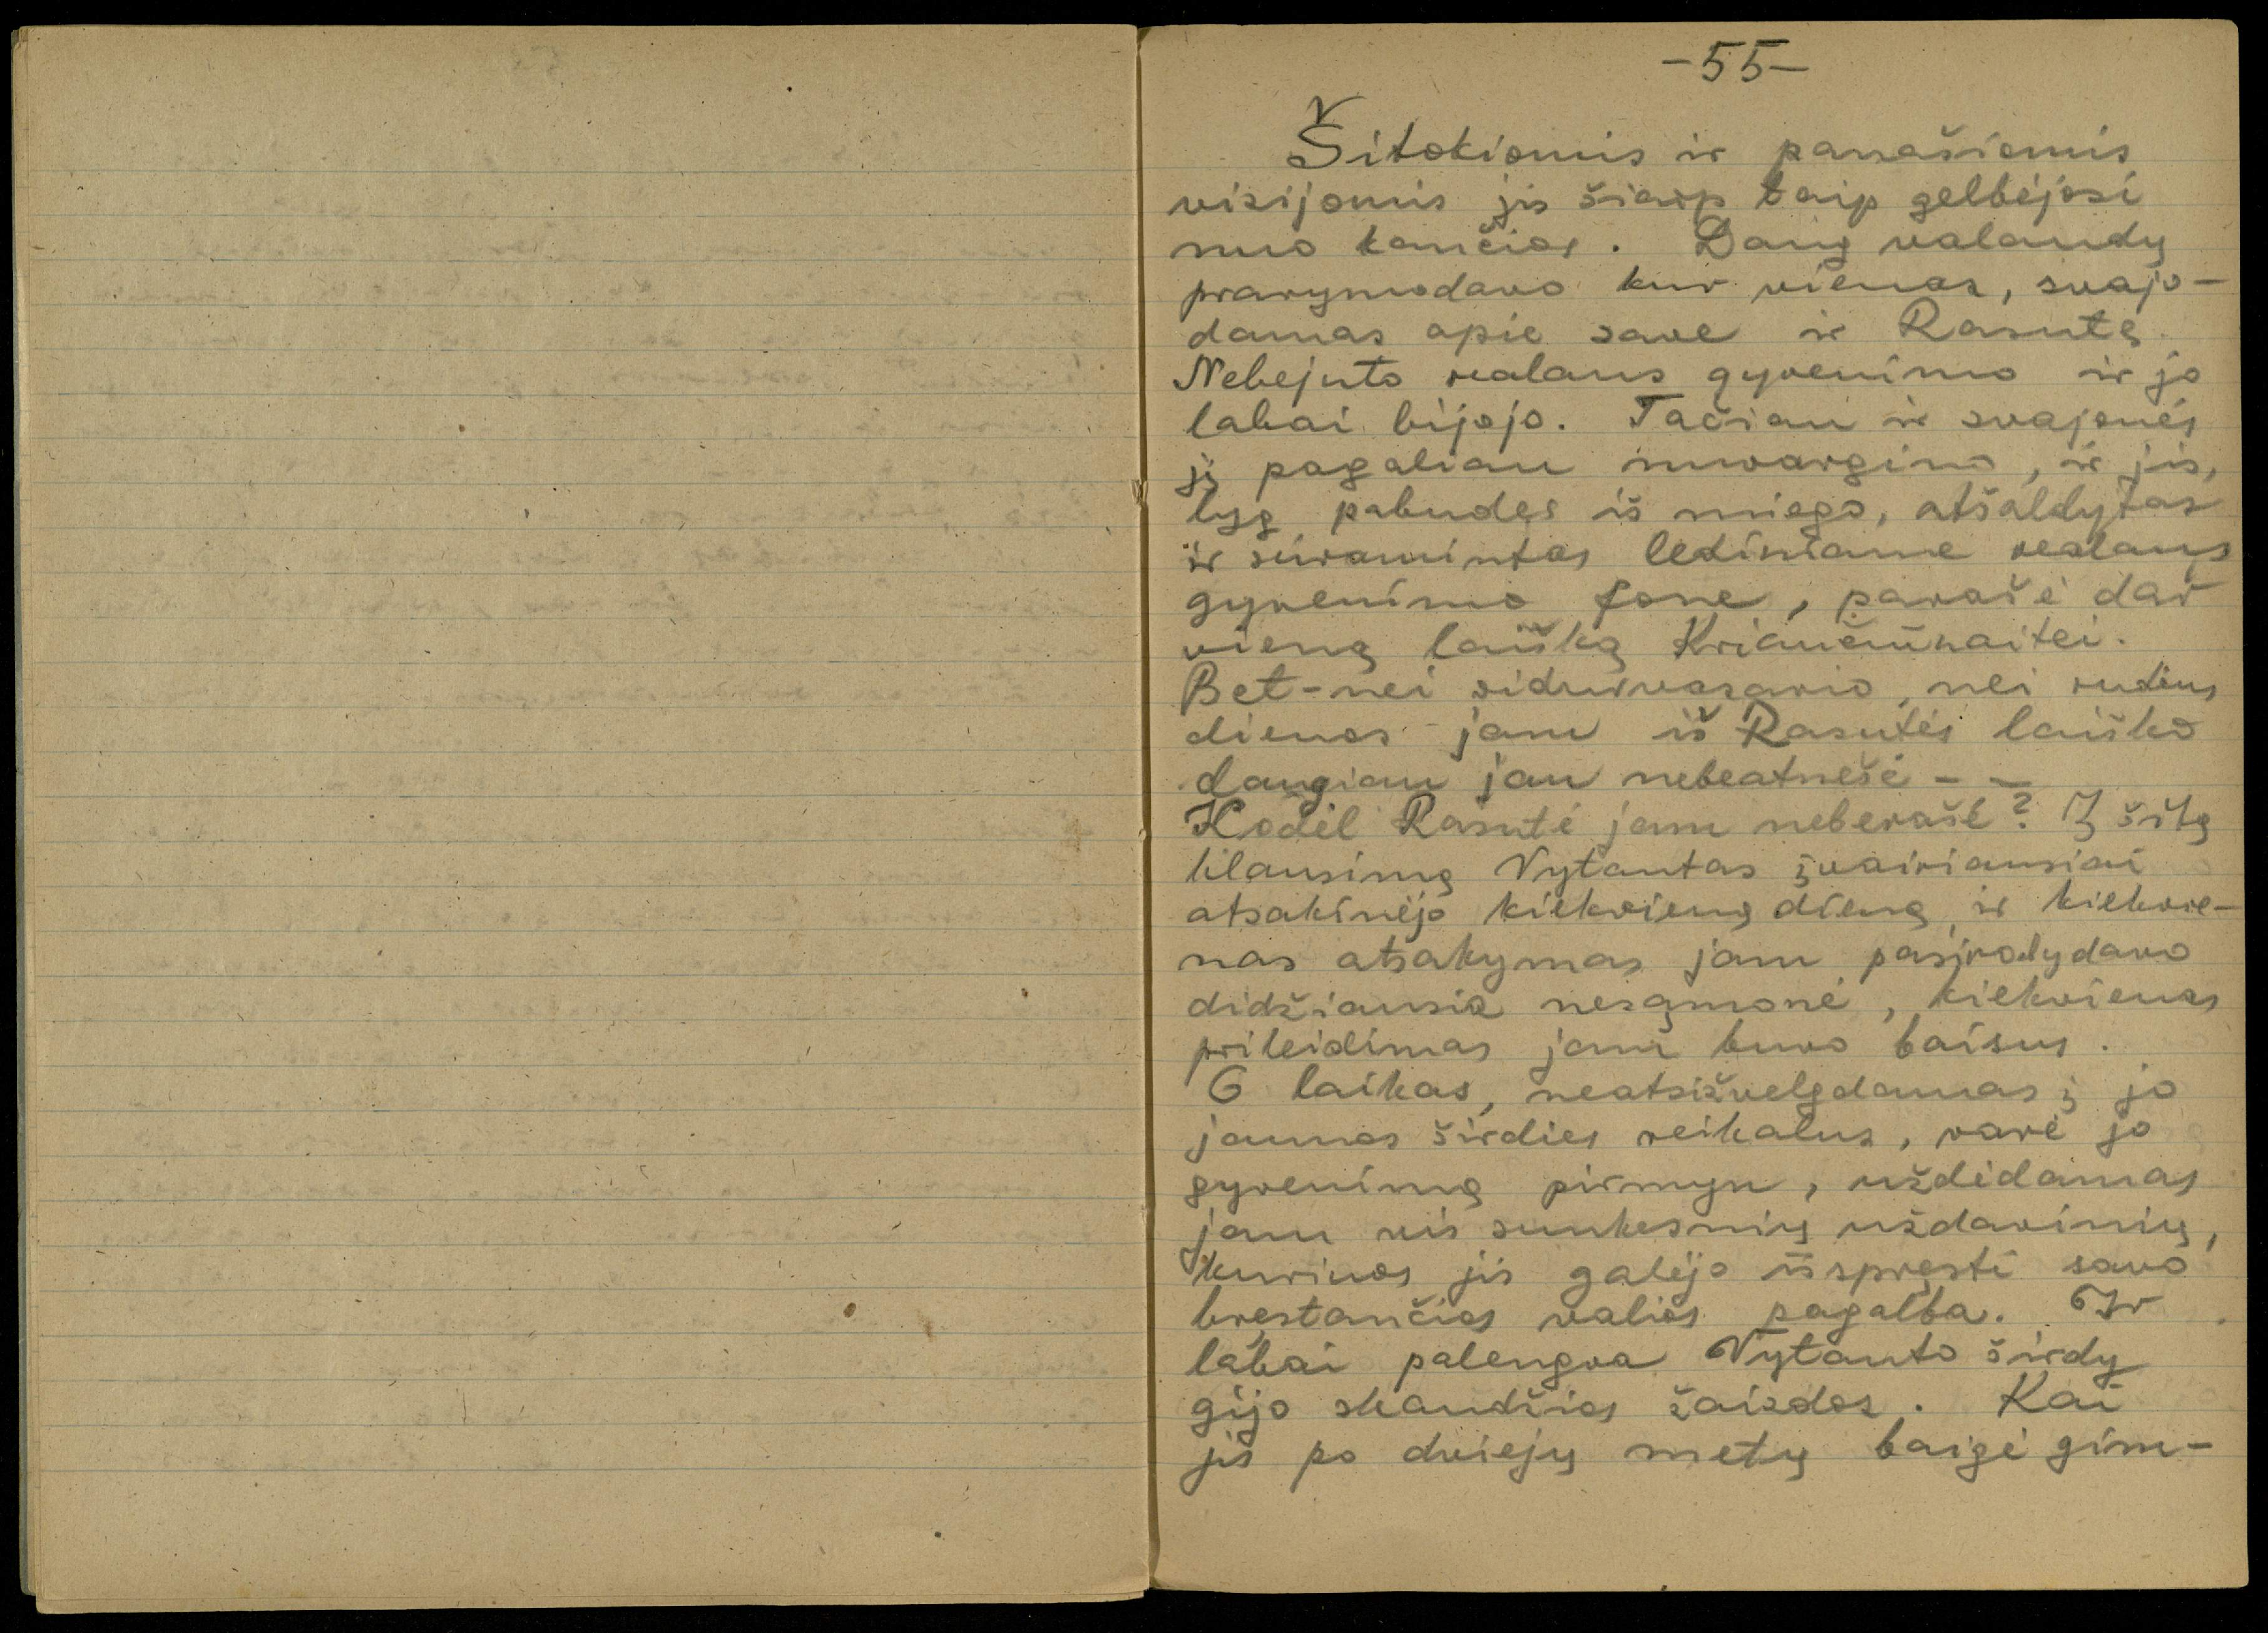 -55-
Šitokiomis ir panašiomis
vizijomis jis šiaip taip gelbėjosi
nuo kančios. Daug valandų
prarymodavo kur vienas, svajo-
damas apie save ir Rasutę.
Nebejuto realaus gyvenimo ir jo
labai bijojo. Tačiau ir svajonės
jį pagaliau nuvargino, ir jis,
lyg pabudęs iš miego, atšaldytas
ir suramintas lediniame realaus
gyvenimo fone, parašė dar
vieną laišką Kriaučiūnaitei.
Bet - nei viduvasario, nei rudens
dienos jam iš Rasutės laiško
daugiau jau nebeatnešė - -
Kodėl Rasutė jam neberašė? Į šitą
klausimą Vytautas įvairiausiai
atsakinėjo kiekvieną dieną, ir kiekvie-
nas atsakymas jam pasirodydavo
didžiausia nesąmonė, kiekvienas
prileidimas jam buvo baisus.
O laikas, neatsižvelgdamas į jo
jaunos širdies reikalus, varė jo
gyvenimą pirmyn, uždėdamas
jam vis sunkesnių uždavinių,
kuriuos jis galėjo išspręsti savo
bręstančios valios pagalba. Ir
labai palengva Vytauto širdy
gijo skaudžios žaizdos. Kai
jis po dviejų metų baigė gim-